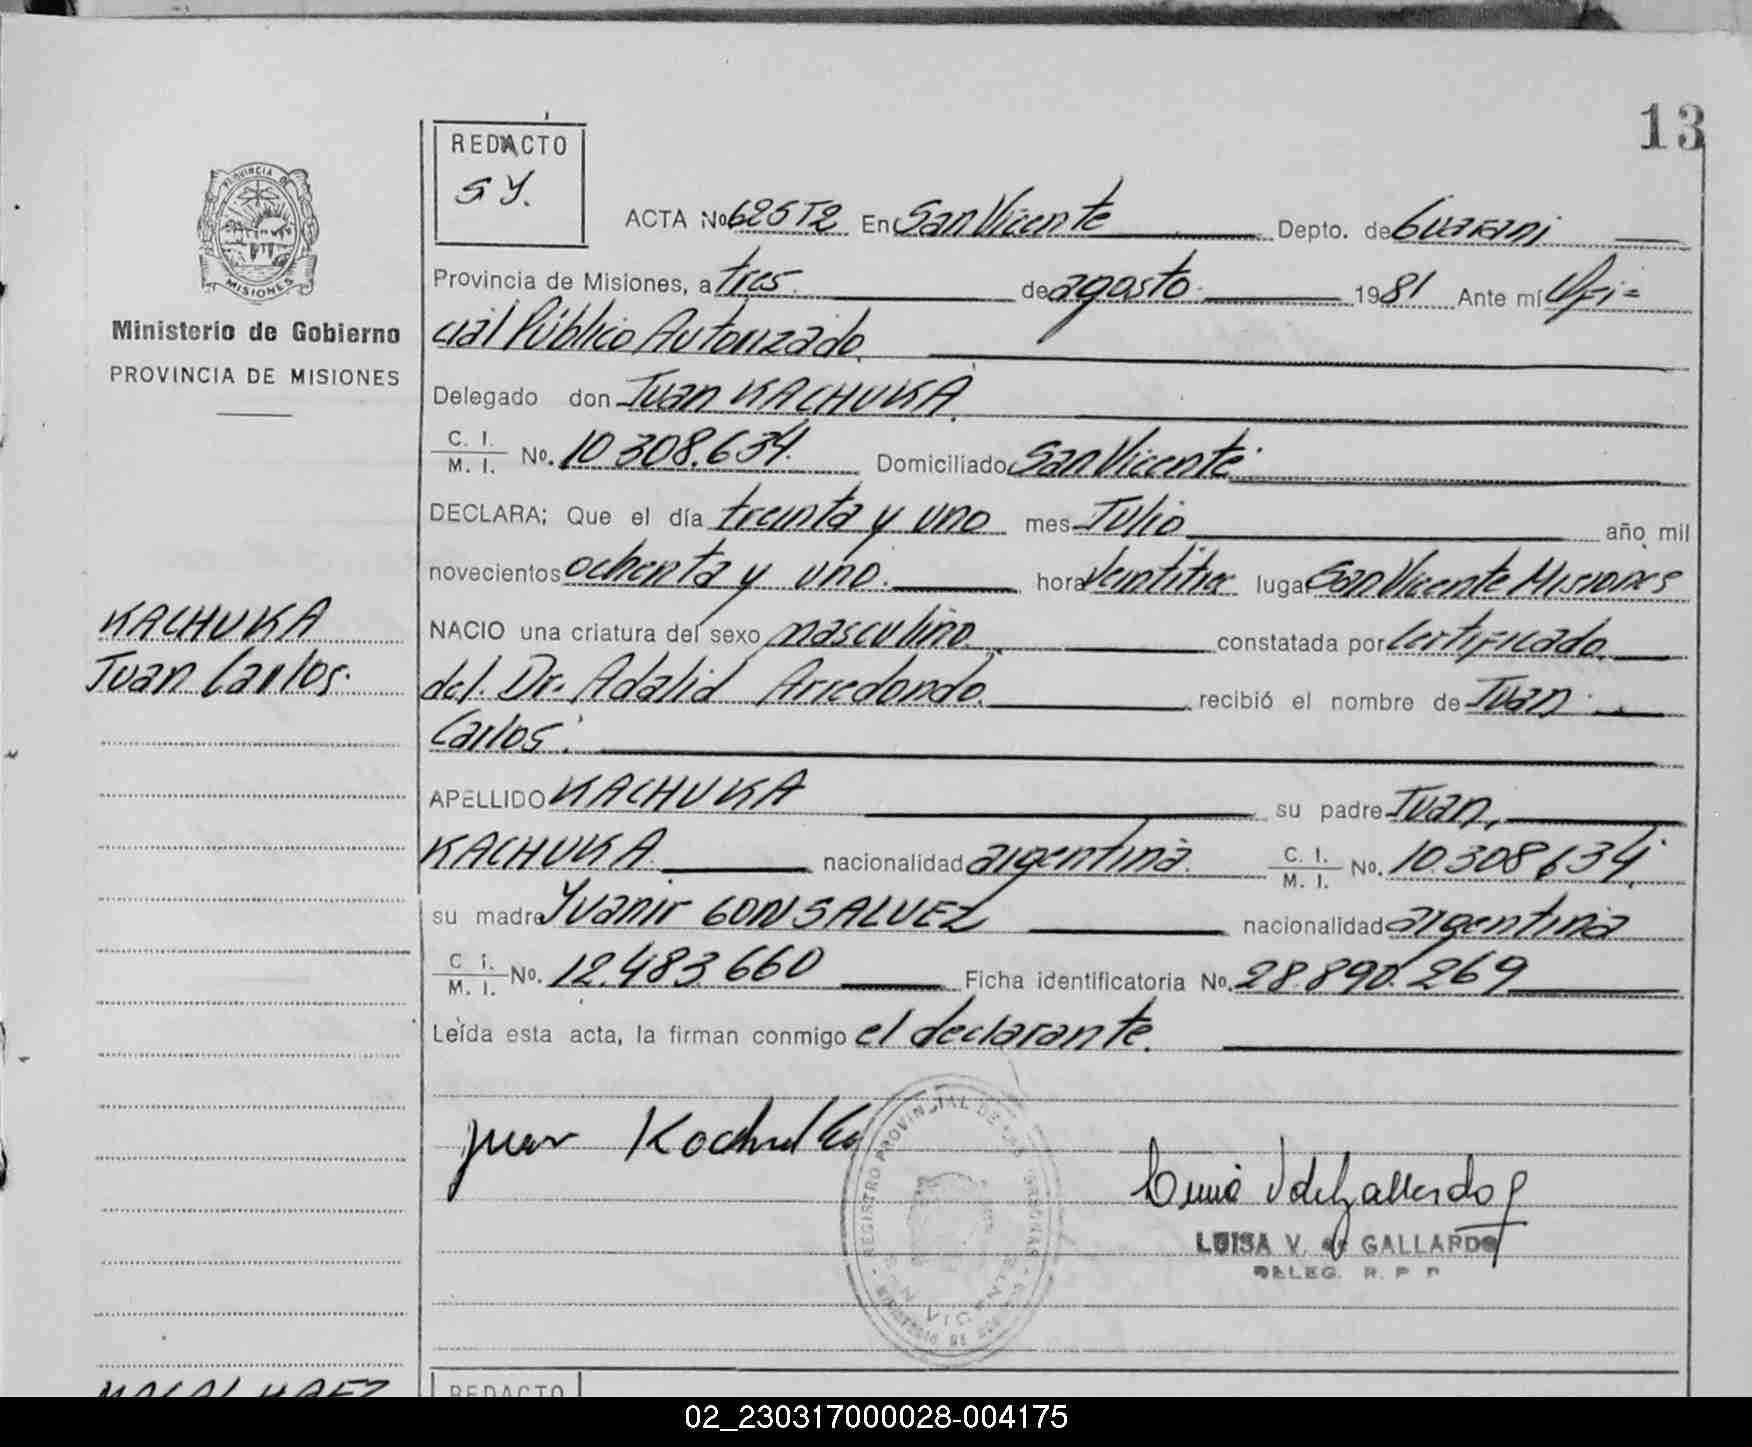 13
REDACTO
S Y.
PROVINCIA DE
MISIONES
Ministerio de Gobierno
PROVINCIA DE MISIONES
ACTA No 625T2 En San Vicente Depto. de Guarani
Provincia de Misiones, a tres. de agosto. 1981 Ante mí Ofi=
cial Público Autorizado.
Delegado don Juan KACHUKA.
C. I.
M. I. No. 10.308.634. Domiciliado San Vicente
DECLARA; Que el día treinta y uno mes Julio año mil
novecientos ochenta y uno. hora veintitres lugar San Vicente Misiones
NACIO una criatura del sexo masculino. constatada por certificado
del. Dr. Adalid Arredondo. recibió el nombre de Juan
Carlos.
APELLIDO KACHUKA su padre Juan,
KACHUKA nacionalidad argentina. C. I.
M. I. No. 10.308634
su madre Yvanir GONSALVEZ nacionalidad argentina
C. I.
M. I. No. 12.483.660 Ficha identificatoria No. 28.890.269
Leída esta acta, la firman conmigo el declarante.
KACHUKA
Juan Carlos.
Juan Kachuka
REGISTRO PROVINCIAL DE LAS PERSONAS
SAN VICENTE
LUISA V. de GALLARDO
DELEG. R. P. P.
REDACTO
02_230317000028-004175